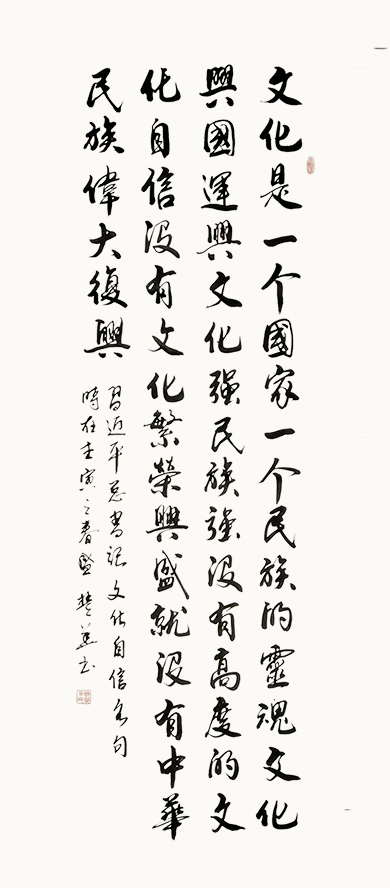 文化是一个國家一个民族的靈魂文化
興國運興文化强民族强沒有高度的文
化自信沒有文化繁榮興盛就沒有中華
民族偉大復興
習近平总書记文化自信名句
時在壬寅之春